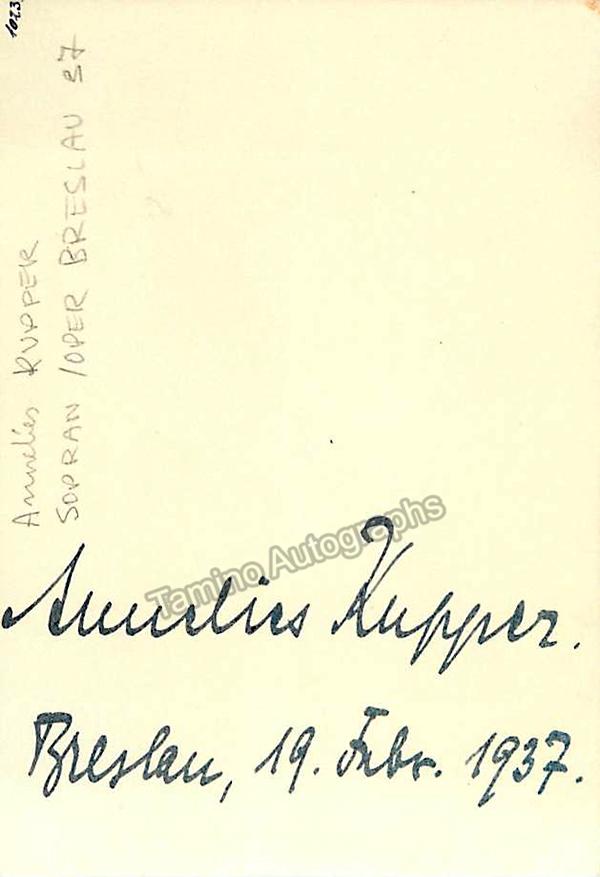 1023
Annelies KUPPER
SOPRAN / OPER BRESLAU 37
Tamino Autographs
Annelies Kupper.
Breslau, 19. Febr. 1937.